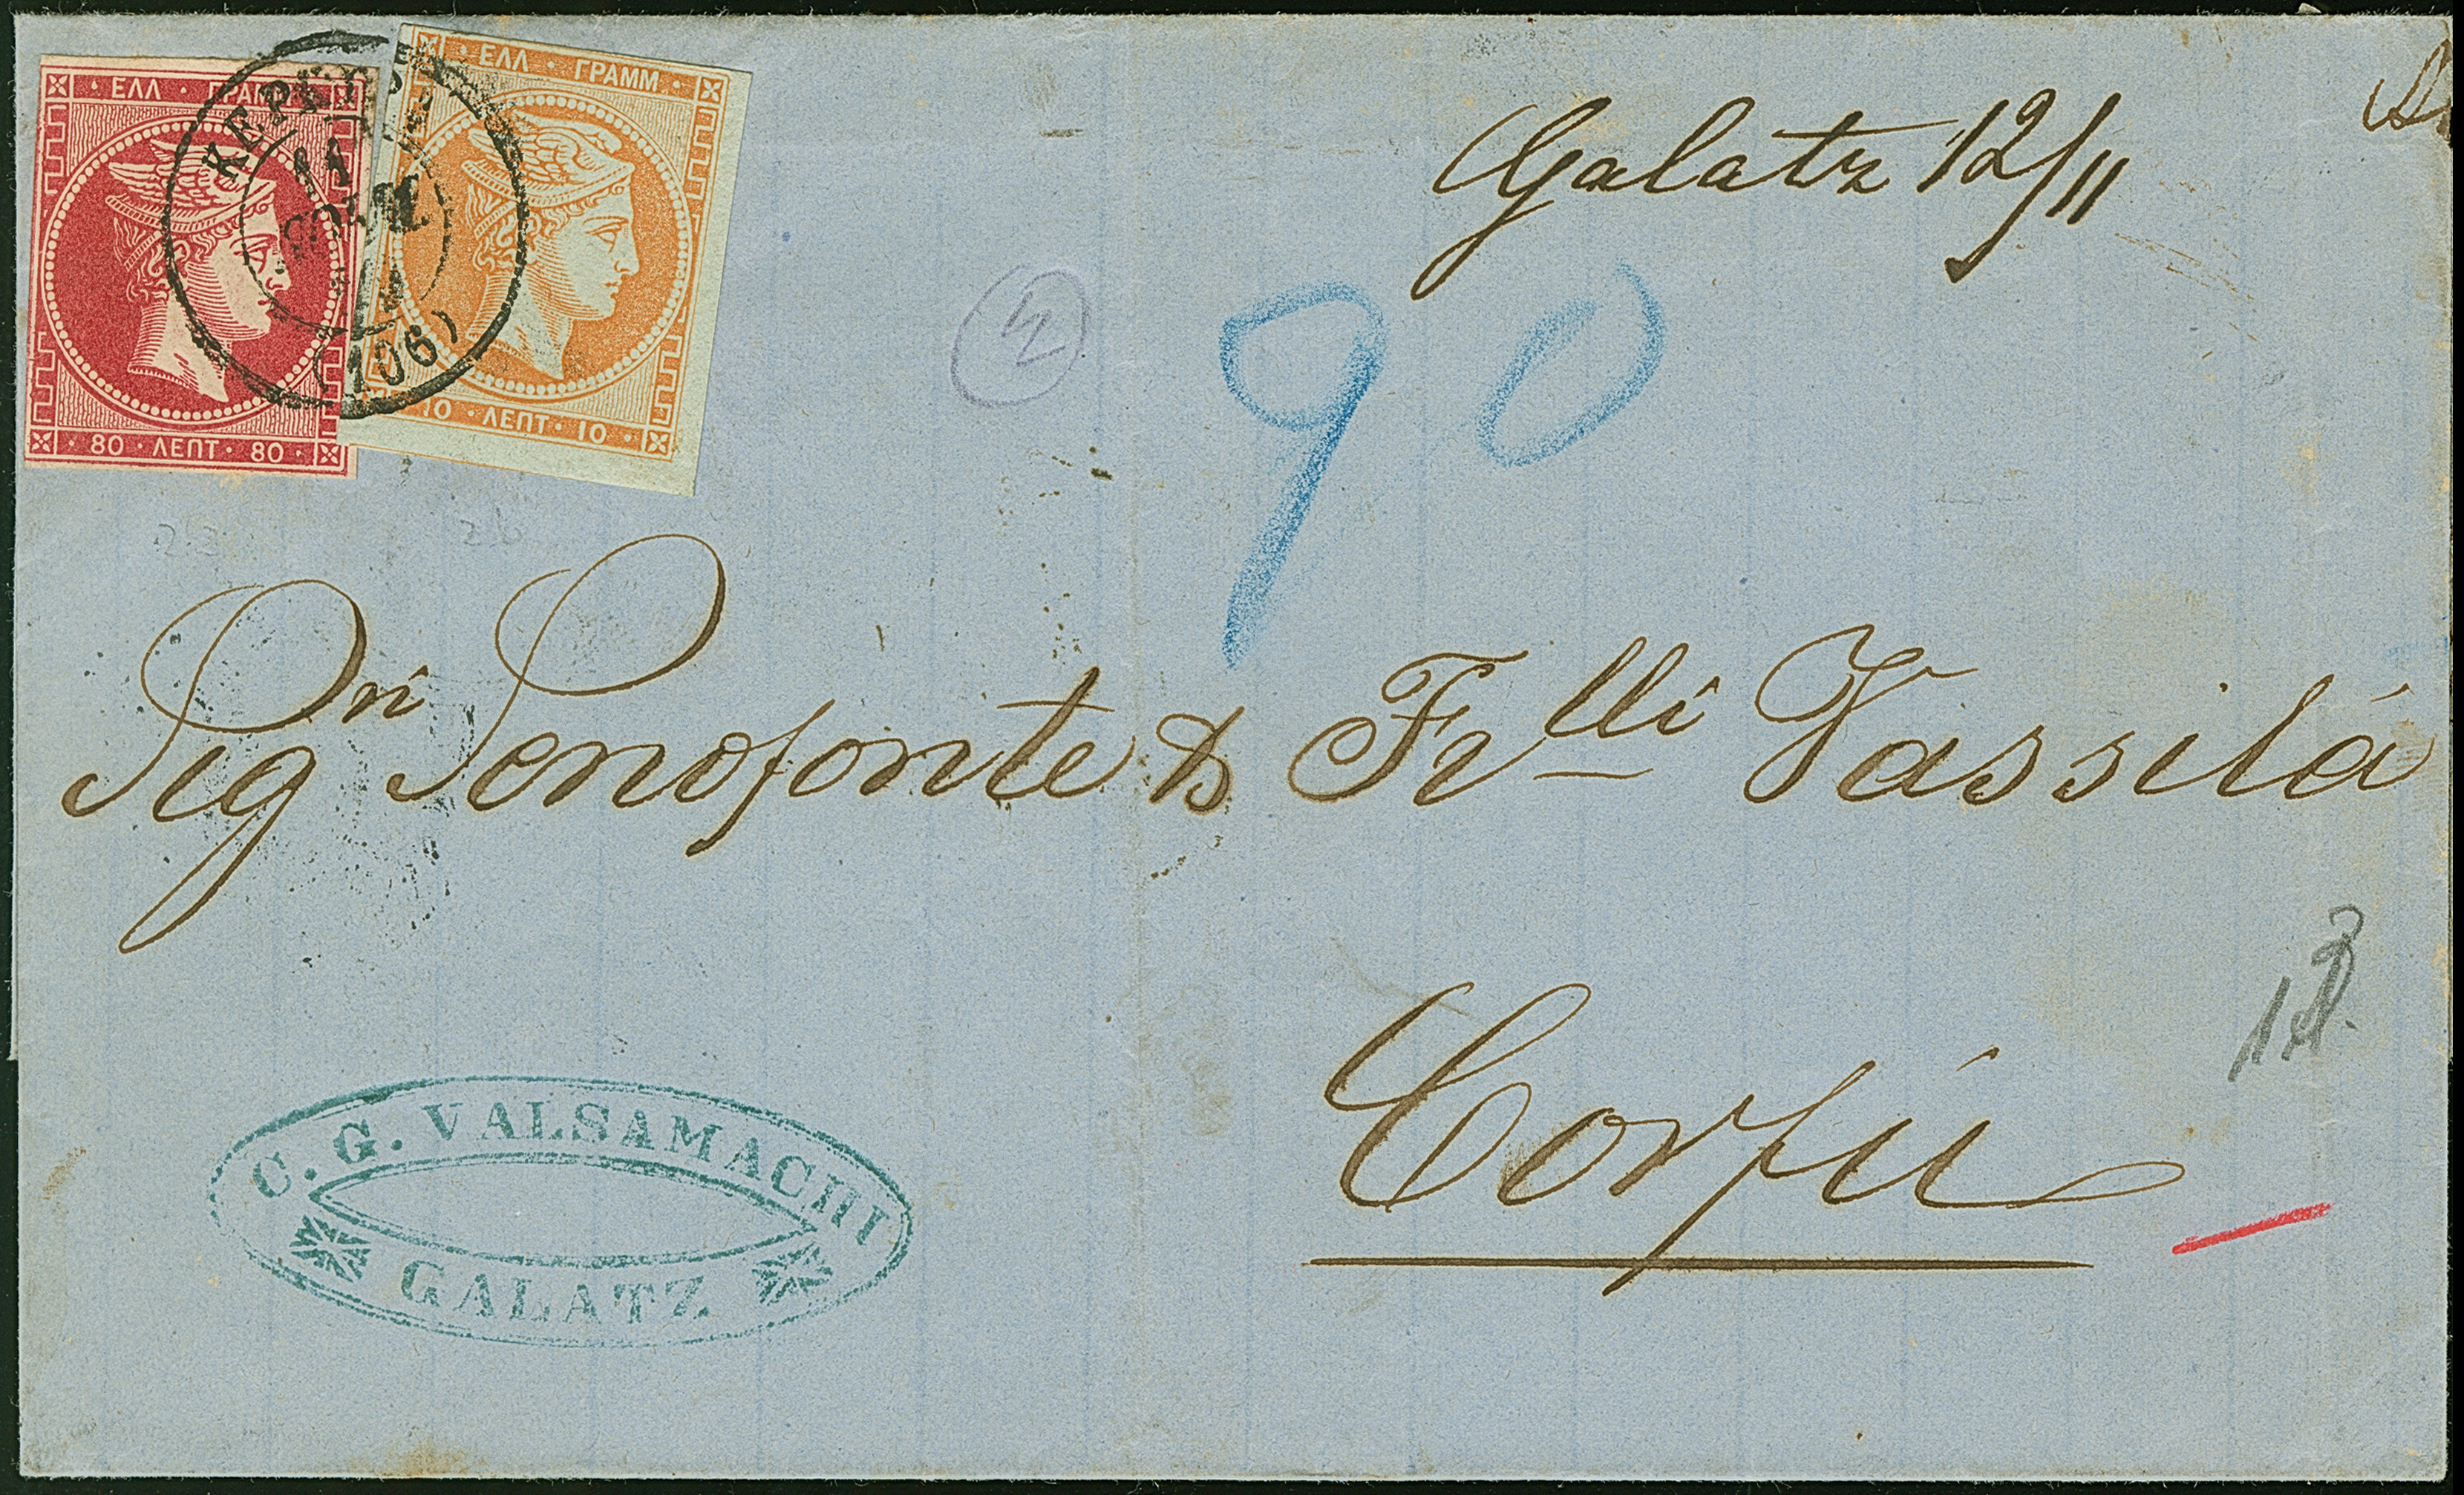 ΕΛΛ · ΓΡΑΜΜ
80 · ΛΕΠΤ · 80
ΕΛΛ · ΓΡΑΜΜ
10 · ΛΕΠΤ · 10
11
(106)
Galatz 12/11
90
Sigri Senofonte & Frlli Vassilá
Corfú
C. G. VALSAMACHI
GALATZ